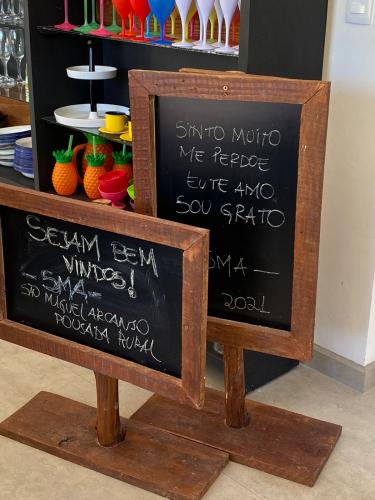 SINTO MUITO
ME PERDOE
EU TE AMO
SOU GRATO
SMA —
2021
SEJAM BEM
VINDOS!
- SMA -
SÃO MIGUEL ARCANJO
POUSADA RURAL